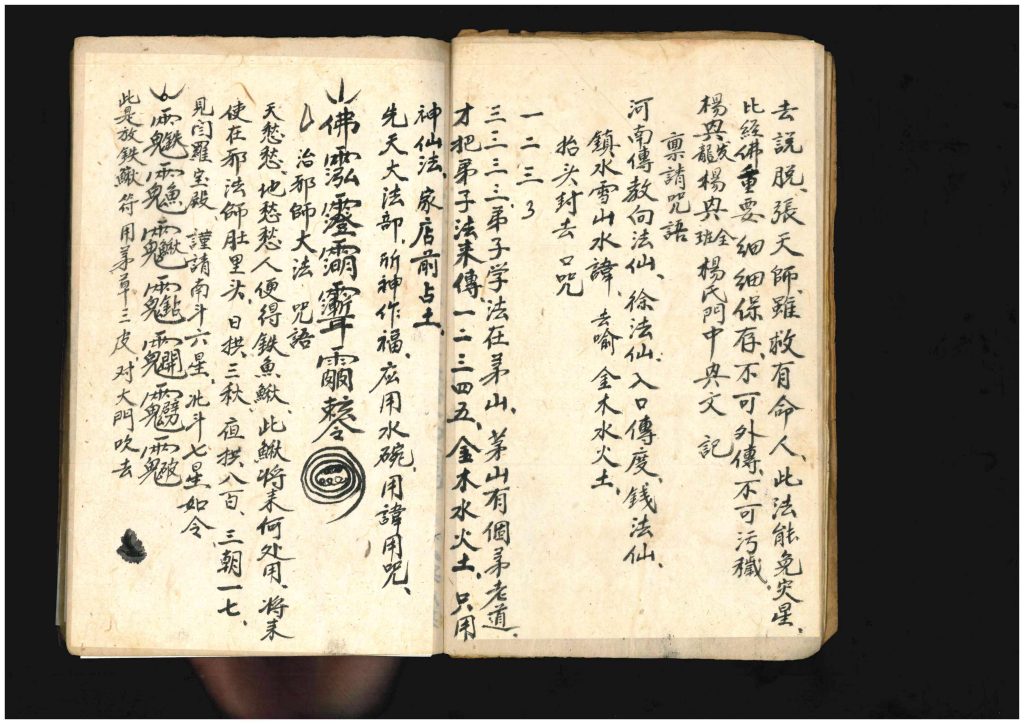 去説脱、張天師、雖救有命人、此法能免灾星、
比經佛重要細細保存、不可外傳、不可污穢、
楊典發龍楊典全班楊氏門中典文 記
禀請咒語
河南傳教何法仙、徐法仙、入口傳度、錢法仙、
鎮水雪山水諱、去喻金木水火土、
抬头封去 口咒
一二三3
三三三三、弟子学法在茅山、茅山有個弟老道、
才把弟子法来傳一二三四五、金木水火土、只用
神仙法、家店前占土、
先天大法部、所神作福、应用水碗、用諱用咒、
佛
治邪師大法 咒語
天愁愁、地愁愁、人便得鉄魚鰍、此鰍将来何处用、将来
使在邪法師肚里头、日拱三秋、夜拱八百、三朝一七、
見闫羅宝殿 謹請南斗六星、北斗七星如令
此是放鉄鰍符用茅草三皮对大門吹去